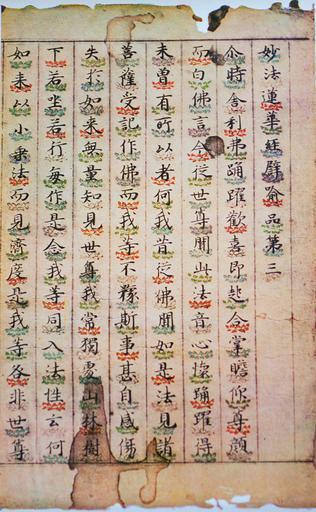 妙法蓮華経譬喻品第三
尒時舍利弗踊躍歡喜即起合掌瞻仰尊顏
而白佛言今從世尊聞此法音心懷踊躍得
未曾有所以者何我昔從佛聞如是法見諸
菩薩受記作佛而我等不豫斯事甚自感傷
失於如来無量知見世尊我常獨處山林樹
下若坐若行每作是念我等同入法性云何
如来以小乗法而見濟度是我等各非世尊